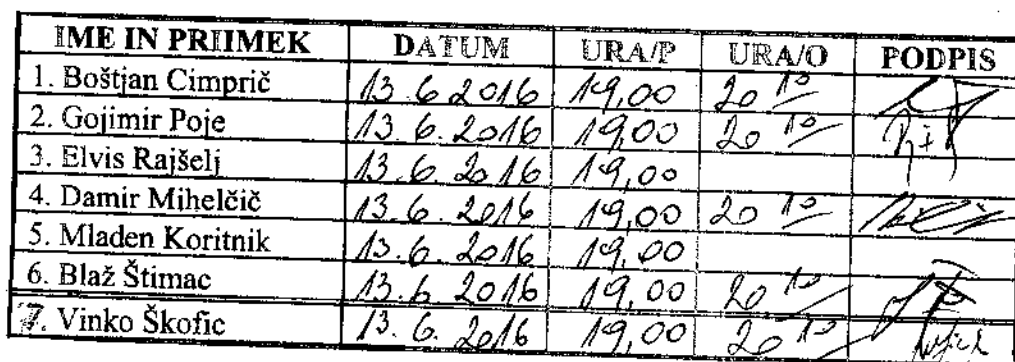 IME IN PRIIMEK DATUM URA/P URA/O PODPIS
1. Boštjan Cimprič 13.6.2016 19,00 20 10
2. Gojimir Poje 13.6.2016 19,00 20 10
3. Elvis Rajšelj 13.6.2016 19,00
4. Damir Mihelčič 13.6.2016 19,00 20 10
5. Mladen Koritnik 13.6.2016 19,00
6. Blaž Štimac 13.6.2016 19,00 20 10
7. Vinko Škofic 13.6.2016 19,00 20 10